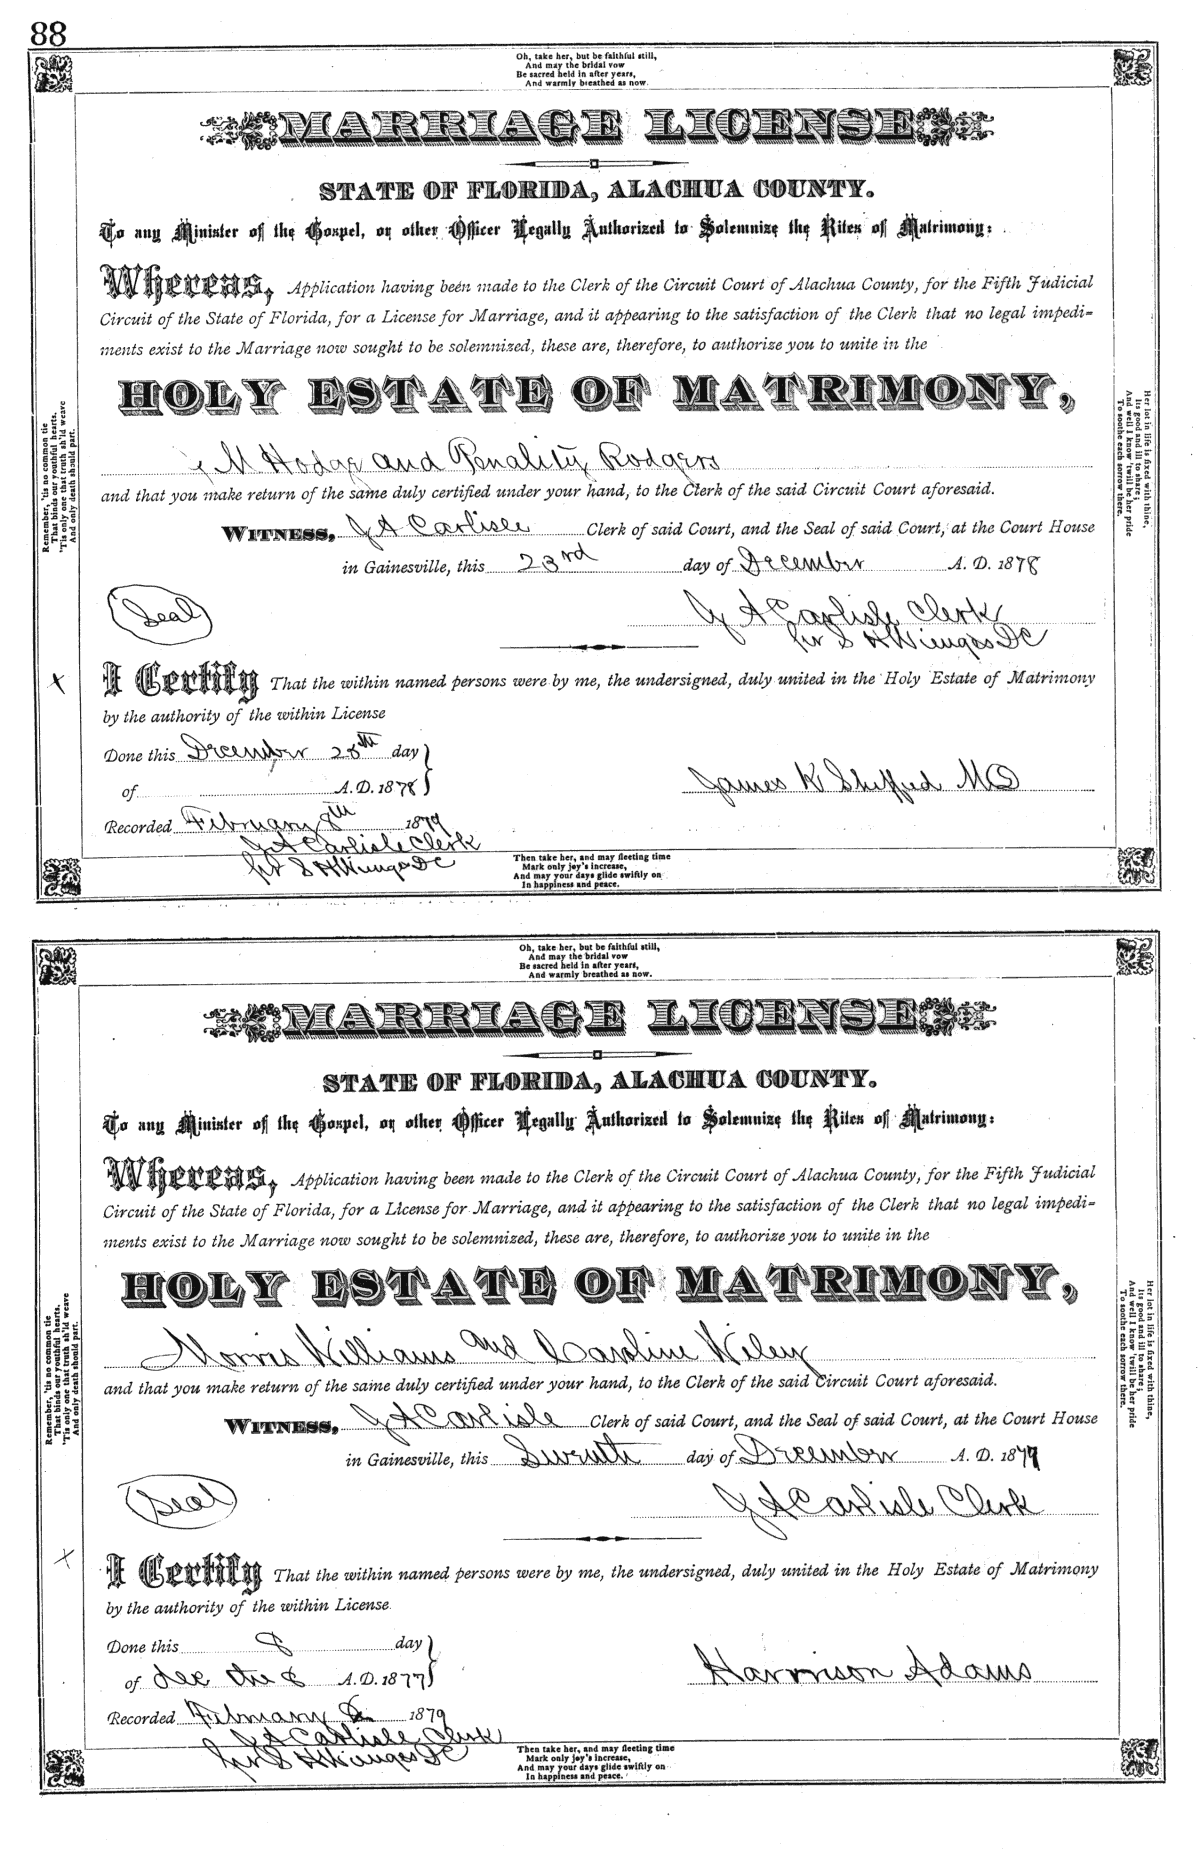 88
Oh, take her, but be faithful still,
And may the bridal vow
Be sacred held in after years,
And warmly breathed as now.
MARRIAGE LICENSE
STATE OF FLORIDA, ALACHUA COUNTY.
To any Minister of the Gospel, or other Officer Legally Authorized to Solemnize the Rites of Matrimony:
Whereas, Application having been made to the Clerk of the Circuit Court of Alachua County, for the Fifth Judicial
Circuit of the State of Florida, for a License for Marriage, and it appearing to the satisfaction of the Clerk that no legal impedi-
ments exist to the Marriage now sought to be solemnized, these are, therefore, to authorize you to unite in the
HOLY ESTATE OF MATRIMONY,
M Hodge and Penality Rodgers
and that you make return of the same duly certified under your hand, to the Clerk of the said Circuit Court aforesaid.
WITNESS, J A Carlisle Clerk of said Court, and the Seal of said Court, at the Court House
in Gainesville, this 23rd day of December A. D. 1878
Seal
J A Carlisle Clerk
pr S H Wienges DC
X
I Certify That the within named persons were by me, the undersigned, duly united in the Holy Estate of Matrimony
by the authority of the within License
Done this December 28th day
of A. D. 1878
James K
Recorded February 8th 1879
J A Carlisle Clerk
pr S H Wienges DC
Then take her, and may fleeting time
Mark only joy's increase,
And may your days glide swiftly on
In happiness and peace.
Remember, 'tis no common tie
That binds our youthful hearts,
'Tis only one that truth sh'ld weave
And only death should part.
Her lot in life is fixed with thine,
Its good and ill to share;
And well I know 'twill be her pride
To soothe each sorrow there.
Oh, take her, but be faithful still,
And may the bridal vow
Be sacred held in after years,
And warmly breathed as now.
MARRIAGE LICENSE
STATE OF FLORIDA, ALACHUA COUNTY.
To any Minister of the Gospel, or other Officer Legally Authorized to Solemnize the Rites of Matrimony:
Whereas, Application having been made to the Clerk of the Circuit Court of Alachua County, for the Fifth Judicial
Circuit of the State of Florida, for a License for Marriage, and it appearing to the satisfaction of the Clerk that no legal impedi-
ments exist to the Marriage now sought to be solemnized, these are, therefore, to authorize you to unite in the
HOLY ESTATE OF MATRIMONY,
Morris Williams and Caroline Wiley
and that you make return of the same duly certified under your hand, to the Clerk of the said Circuit Court aforesaid.
WITNESS, J A Carlisle Clerk of said Court, and the Seal of said Court, at the Court House
in Gainesville, this Seventh day of December A. D. 1877
Seal
J A Carlisle Clerk
X
I Certify That the within named persons were by me, the undersigned, duly united in the Holy Estate of Matrimony
by the authority of the within License
Done this 8 day
of dec the 8 A. D. 1877
Harrison Adams
Recorded February 8 1879
J A Carlisle Clerk
pr S H Wienges DC
Then take her, and may fleeting time
Mark only joy's increase,
And may your days glide swiftly on
In happiness and peace.
Remember, 'tis no common tie
That binds our youthful hearts,
'Tis only one that truth sh'ld weave
And only death should part.
Her lot in life is fixed with thine,
Its good and ill to share;
And well I know 'twill be her pride
To soothe each sorrow there.